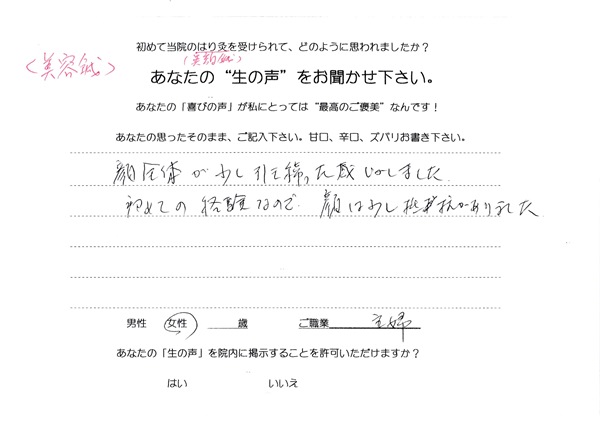 初めて当院のはり灸を受けられて、どのように思われましたか?
〈美容鍼〉
(美顔鍼)
あなたの“生の声”をお聞かせ下さい。
あなたの「喜びの声」が私にとっては“最高のご褒美”なんです!
あなたの思ったそのまま、ご記入下さい。甘口、辛口、ズバリお書き下さい。
顔全体が少し引き締った感じがしました。
初めての経験なので、顔は少し抵抗がありました
男性 女性 歳 ご職業 主婦
あなたの「生の声」を院内に掲示することを許可いただけますか?
はい いいえ